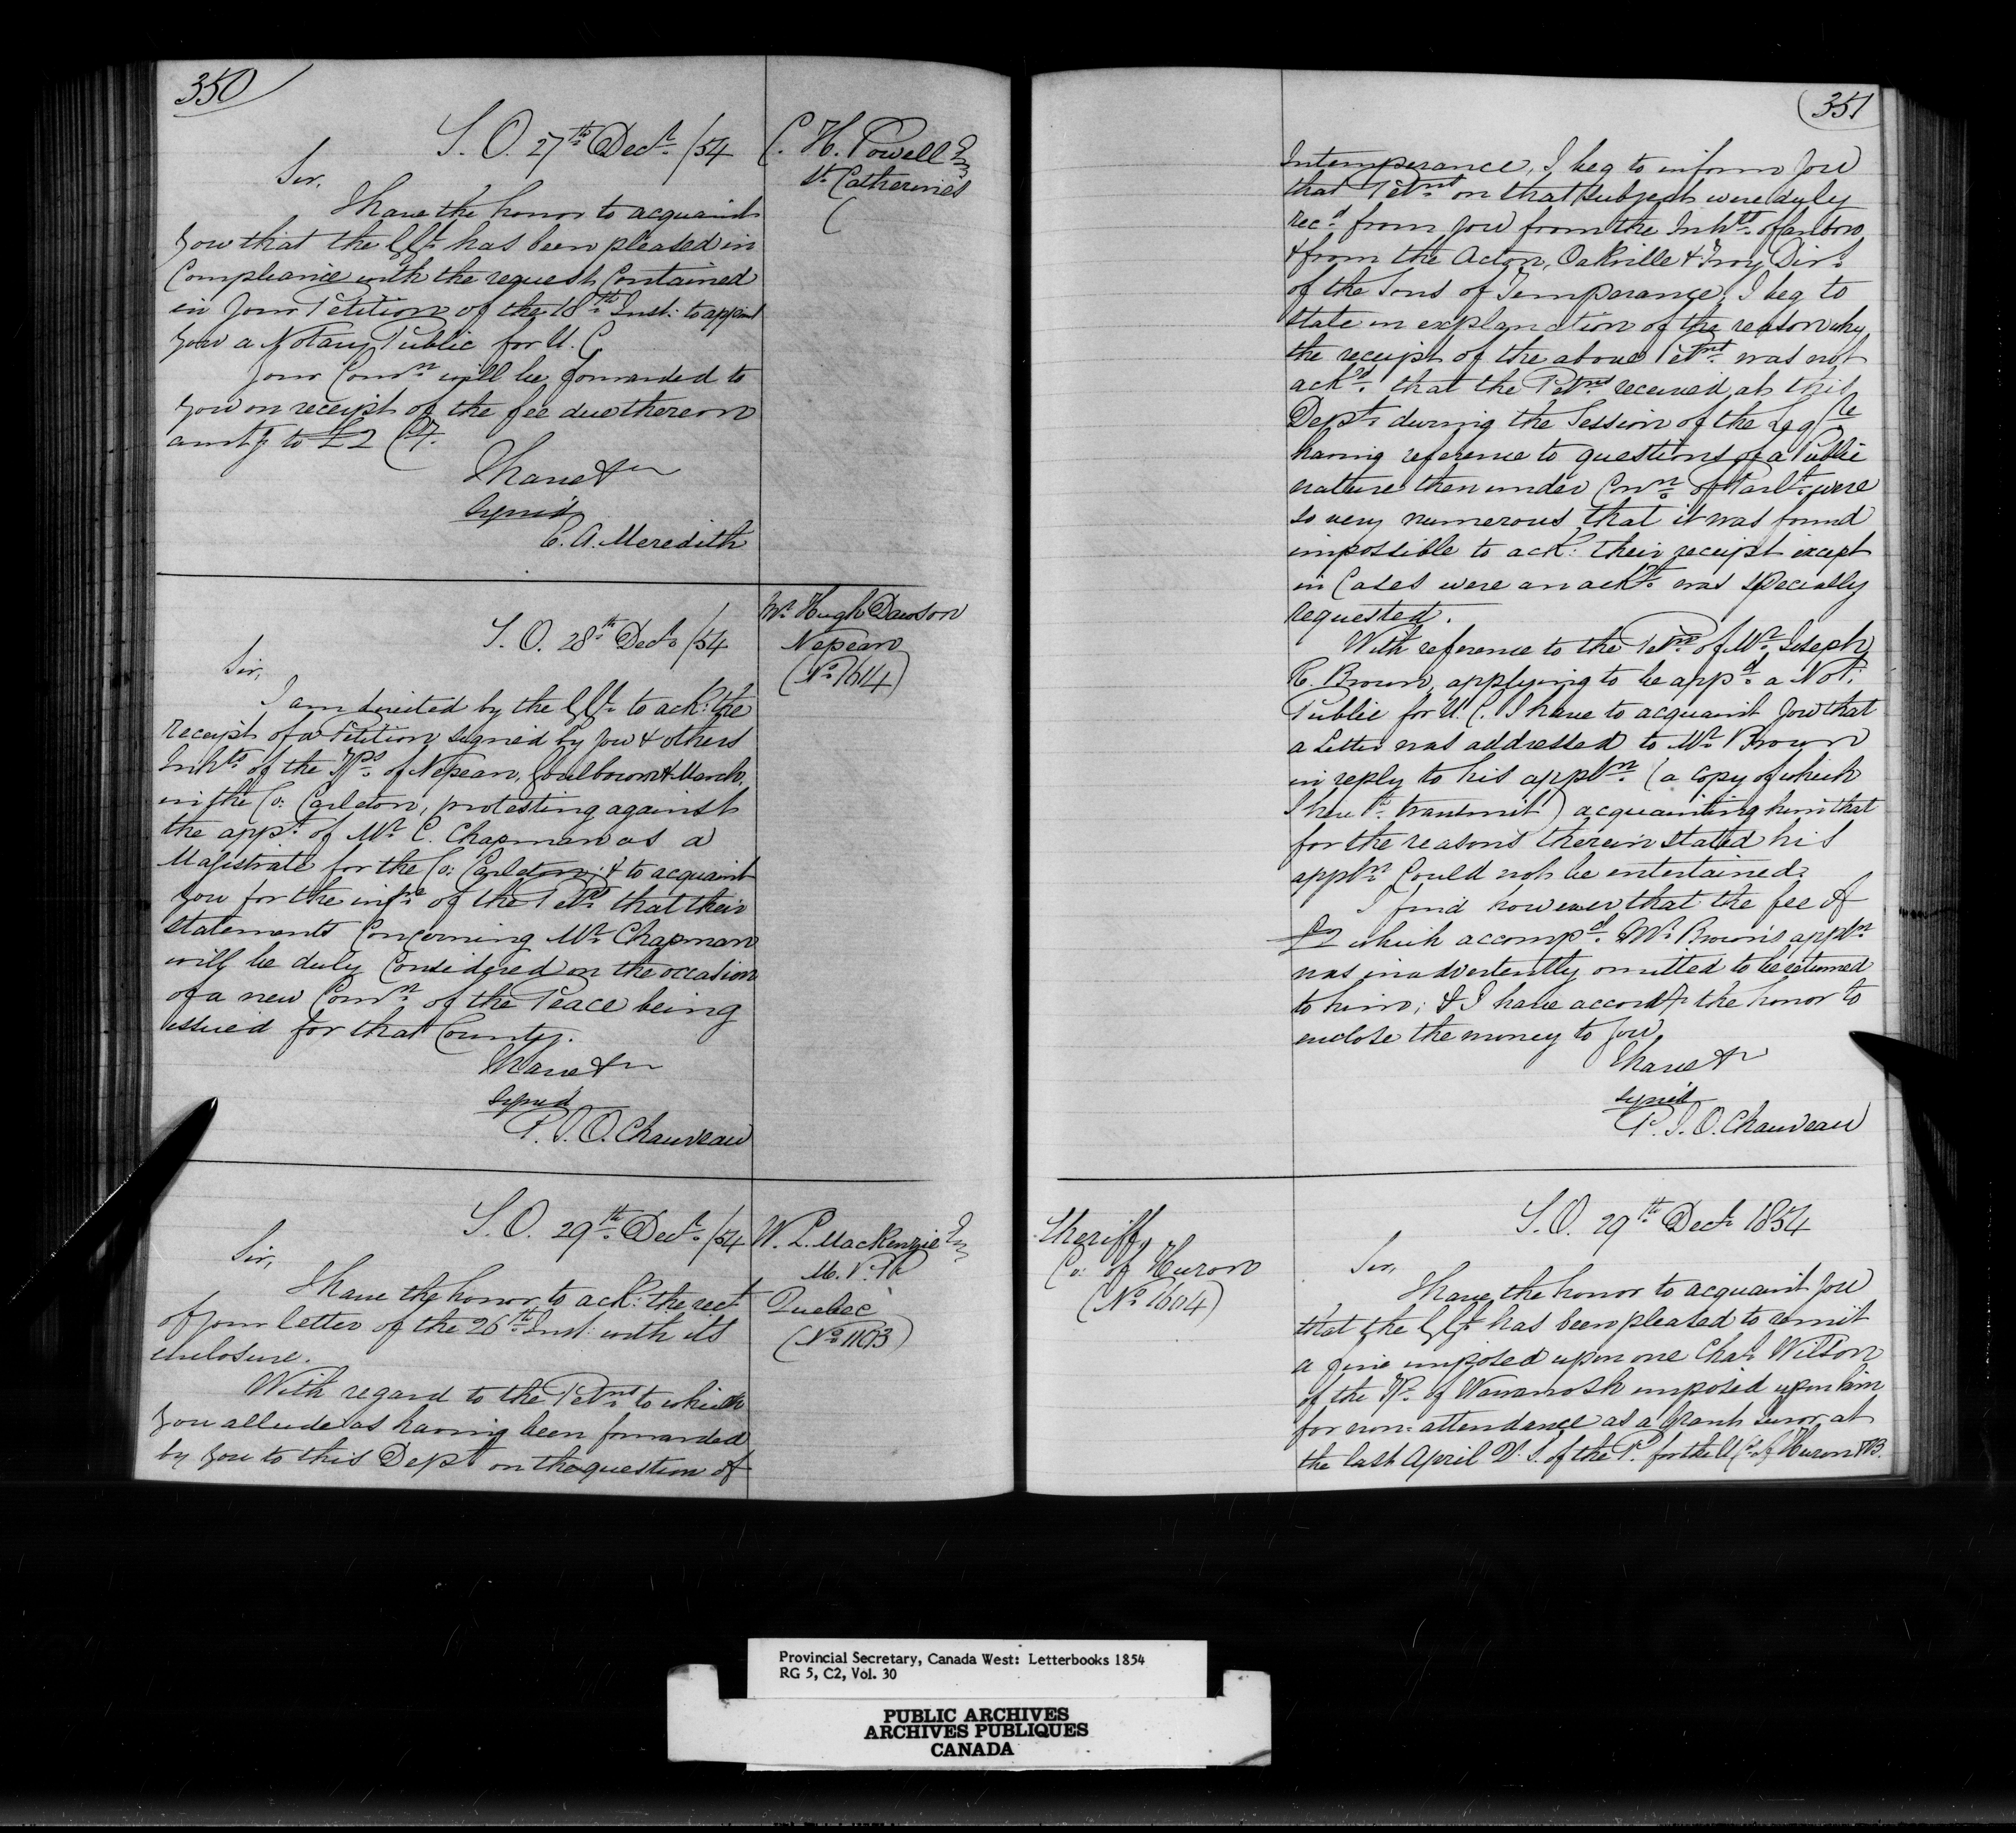 350
S. O. 27th Decr. /54
C. H. Powell Esq
St. Catherines
(
Sir,
I have the honor to acquaint
you that the G G. has been pleased in
Compliance with the request Contained
in your Petition of the 18th Inst: to appoint
you a Notary Public for U. C.
Your Comn. will be forwarded to
you on receipt of the fee due thereon
amtg to £2 Cy.
I have &c
signed
E. A. Meredith
S. O. 28th Decr. /54
Mr. Hugh Dawson
Nepean
(No. 1614)
Sir,
I am directed by the G G. to ack: the
receipt of a Petition signed by you & others
Inhts. of the Tps. of Nepean, Goulbourn & March,
in the Co: Carleton, protesting against
the appt. of Mr. C. Chapman as a
Magistrate for the Co: Carleton; & to acquaint
you for the infn. of the Petrs. that their
statements Concerning Mr. Chapman
will be duly Considered on the occasion
of a new Comn. of the Peace being
issued for that County.
I have &c
signed
P. J. O. Chauveau
S. O. 29th Decr. /54
W. L. MacKenzie Esq
M. P. P.
Quebec
(No. 1103)
Sir,
I have the honor to ack: the rect
of your letter of the 26th Inst: with its
enclosure.
With regard to the Petns. to which
you allude as having been forwarded
by you to this Dept on the question of
351
Intemperance, I beg to inform you
that Petns. on that subject were duly
recd. from you from the Inhts. of
& from the Acton, Oakville & Troy Divs.
of the Sons of Temperance, I beg to
state in explanation of the reason why
the receipt of the above Petns. was not
ackd. that the Petns. received at this
Dept. during the Session of the Legre
having reference to questions of a Public
nature then under Conn. of Parlt. were
so very numerous that it was found
impossible to ack: their receipt except
in Cases were an ackt. was specially
requested.
With reference to the Petn. of Mr. Joseph
C. Brown, applying to be appd. a Not:
Public for U. C. I have to acquaint you that
a Letter was addressed to Mr. Brown
in reply to his appln. (a copy of which
I herewh. transmit) acquainting him that
for the reasons therein stated his
appln. Could not be entertained.
I find however that the fee of
£2 which accompd. Mr. Brown's appln
was inadvertently omitted to be returned
to him; & I have accordy. the honor to
enclose the money to you
I have &c
signed
P. J. O. Chauveau
S. O. 29th Decr. 1854
Sheriff,
Co: of Huron
(No. 1604)
Sir,
I have the honor to acquaint you
that the G G. has been pleased to remit
a fine imposed upon one Chas. Wilson
of the Tp. of Wawanosh imposed upon him
for non-attendance as a Grand Juror at
the last April Q. S. of the P. for the U Cs. of Huron & B.
Provincial Secretary, Canada West: Letterbooks 1854
RG 5, C2, Vol. 30
PUBLIC ARCHIVES
ARCHIVES PUBLIQUES
CANADA